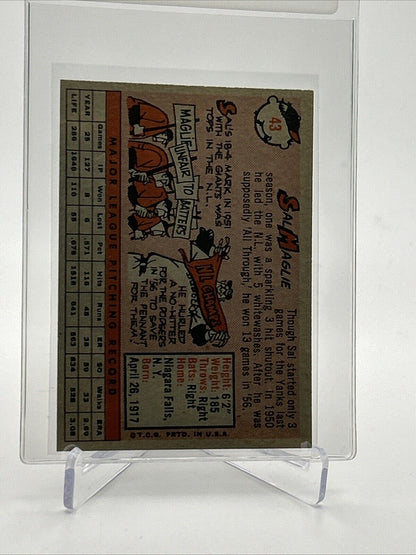 43
SAL MAGLIE
Though Sal started only 3
games for the Yanks last
season, one was a sparkling 3 hit shutout. In 1950
he led the N.L. with 5 whitewashes. After he was
supposedly 'All Through,' he won 13 games in '56.
SAL'S 18-4 MARK IN 1951
WITH THE GIANTS WAS
TOPS IN THE N.L.
MAGLIE
UNFAIR TO
BATTERS
N.L. CHAMPS
HE HURLED
A NO-HITTER
FOR THE DODGERS
IN '56 TO SAVE
THE PENNANT
FOR THEM!
Height: 6'2"
Weight: 185
Throws: Right
Bats: Right
Home:
Niagara Falls,
N.Y.
Born:
April 26, 1917
MAJOR LEAGUE PITCHING RECORD
Games IP Won Lost Pct. Hits Runs ER SO Walks ERA
YEAR 25 127 8 6 .571 116 48 38 33 2.69
LIFE 1646 110 55 1518 641 563 824 528 3.08
© T.C.G. PRTD. IN U.S.A.